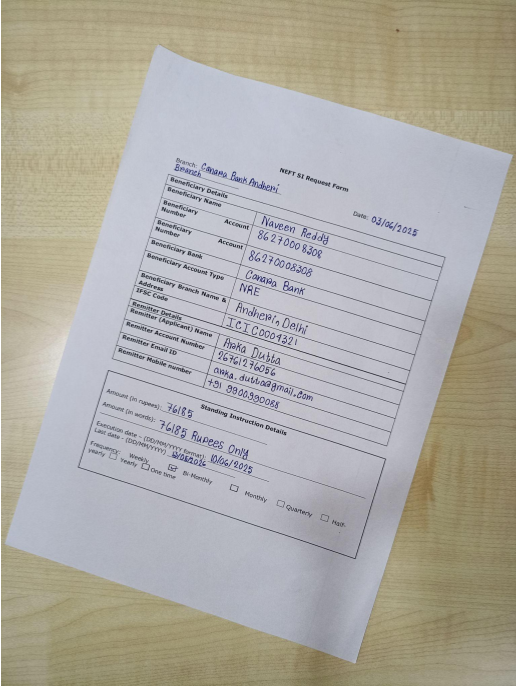 NEFT SI Request Form
Branch: Canara Bank Andheri
Branch
Date: 03/06/2025
Beneficiary Details
Beneficiary Name Naveen Reddy
Beneficiary Account Number 86270008308
Beneficiary Account Number 86270008308
Beneficiary Bank Canara Bank
Beneficiary Account Type NRE
Beneficiary Branch Name & Address Andheri, Delhi
IFSC Code ICIC0004321
Remitter Details
Remitter (Applicant) Name Arka Dutta
Remitter Account Number 26761276056
Remitter Email ID arka.dutta@gmail.com
Remitter Mobile number +91 9900990088
Standing Instruction Details
Amount (in rupees): 76185
Amount (in words): 76185 Rupees Only
Execution date – (DD/MM/YYYY format): 10/06/2025
Last date - (DD/MM/YYYY)
Frequency: Weekly Bi-Monthly Monthly Quarterly Half-
yearly Yearly One time